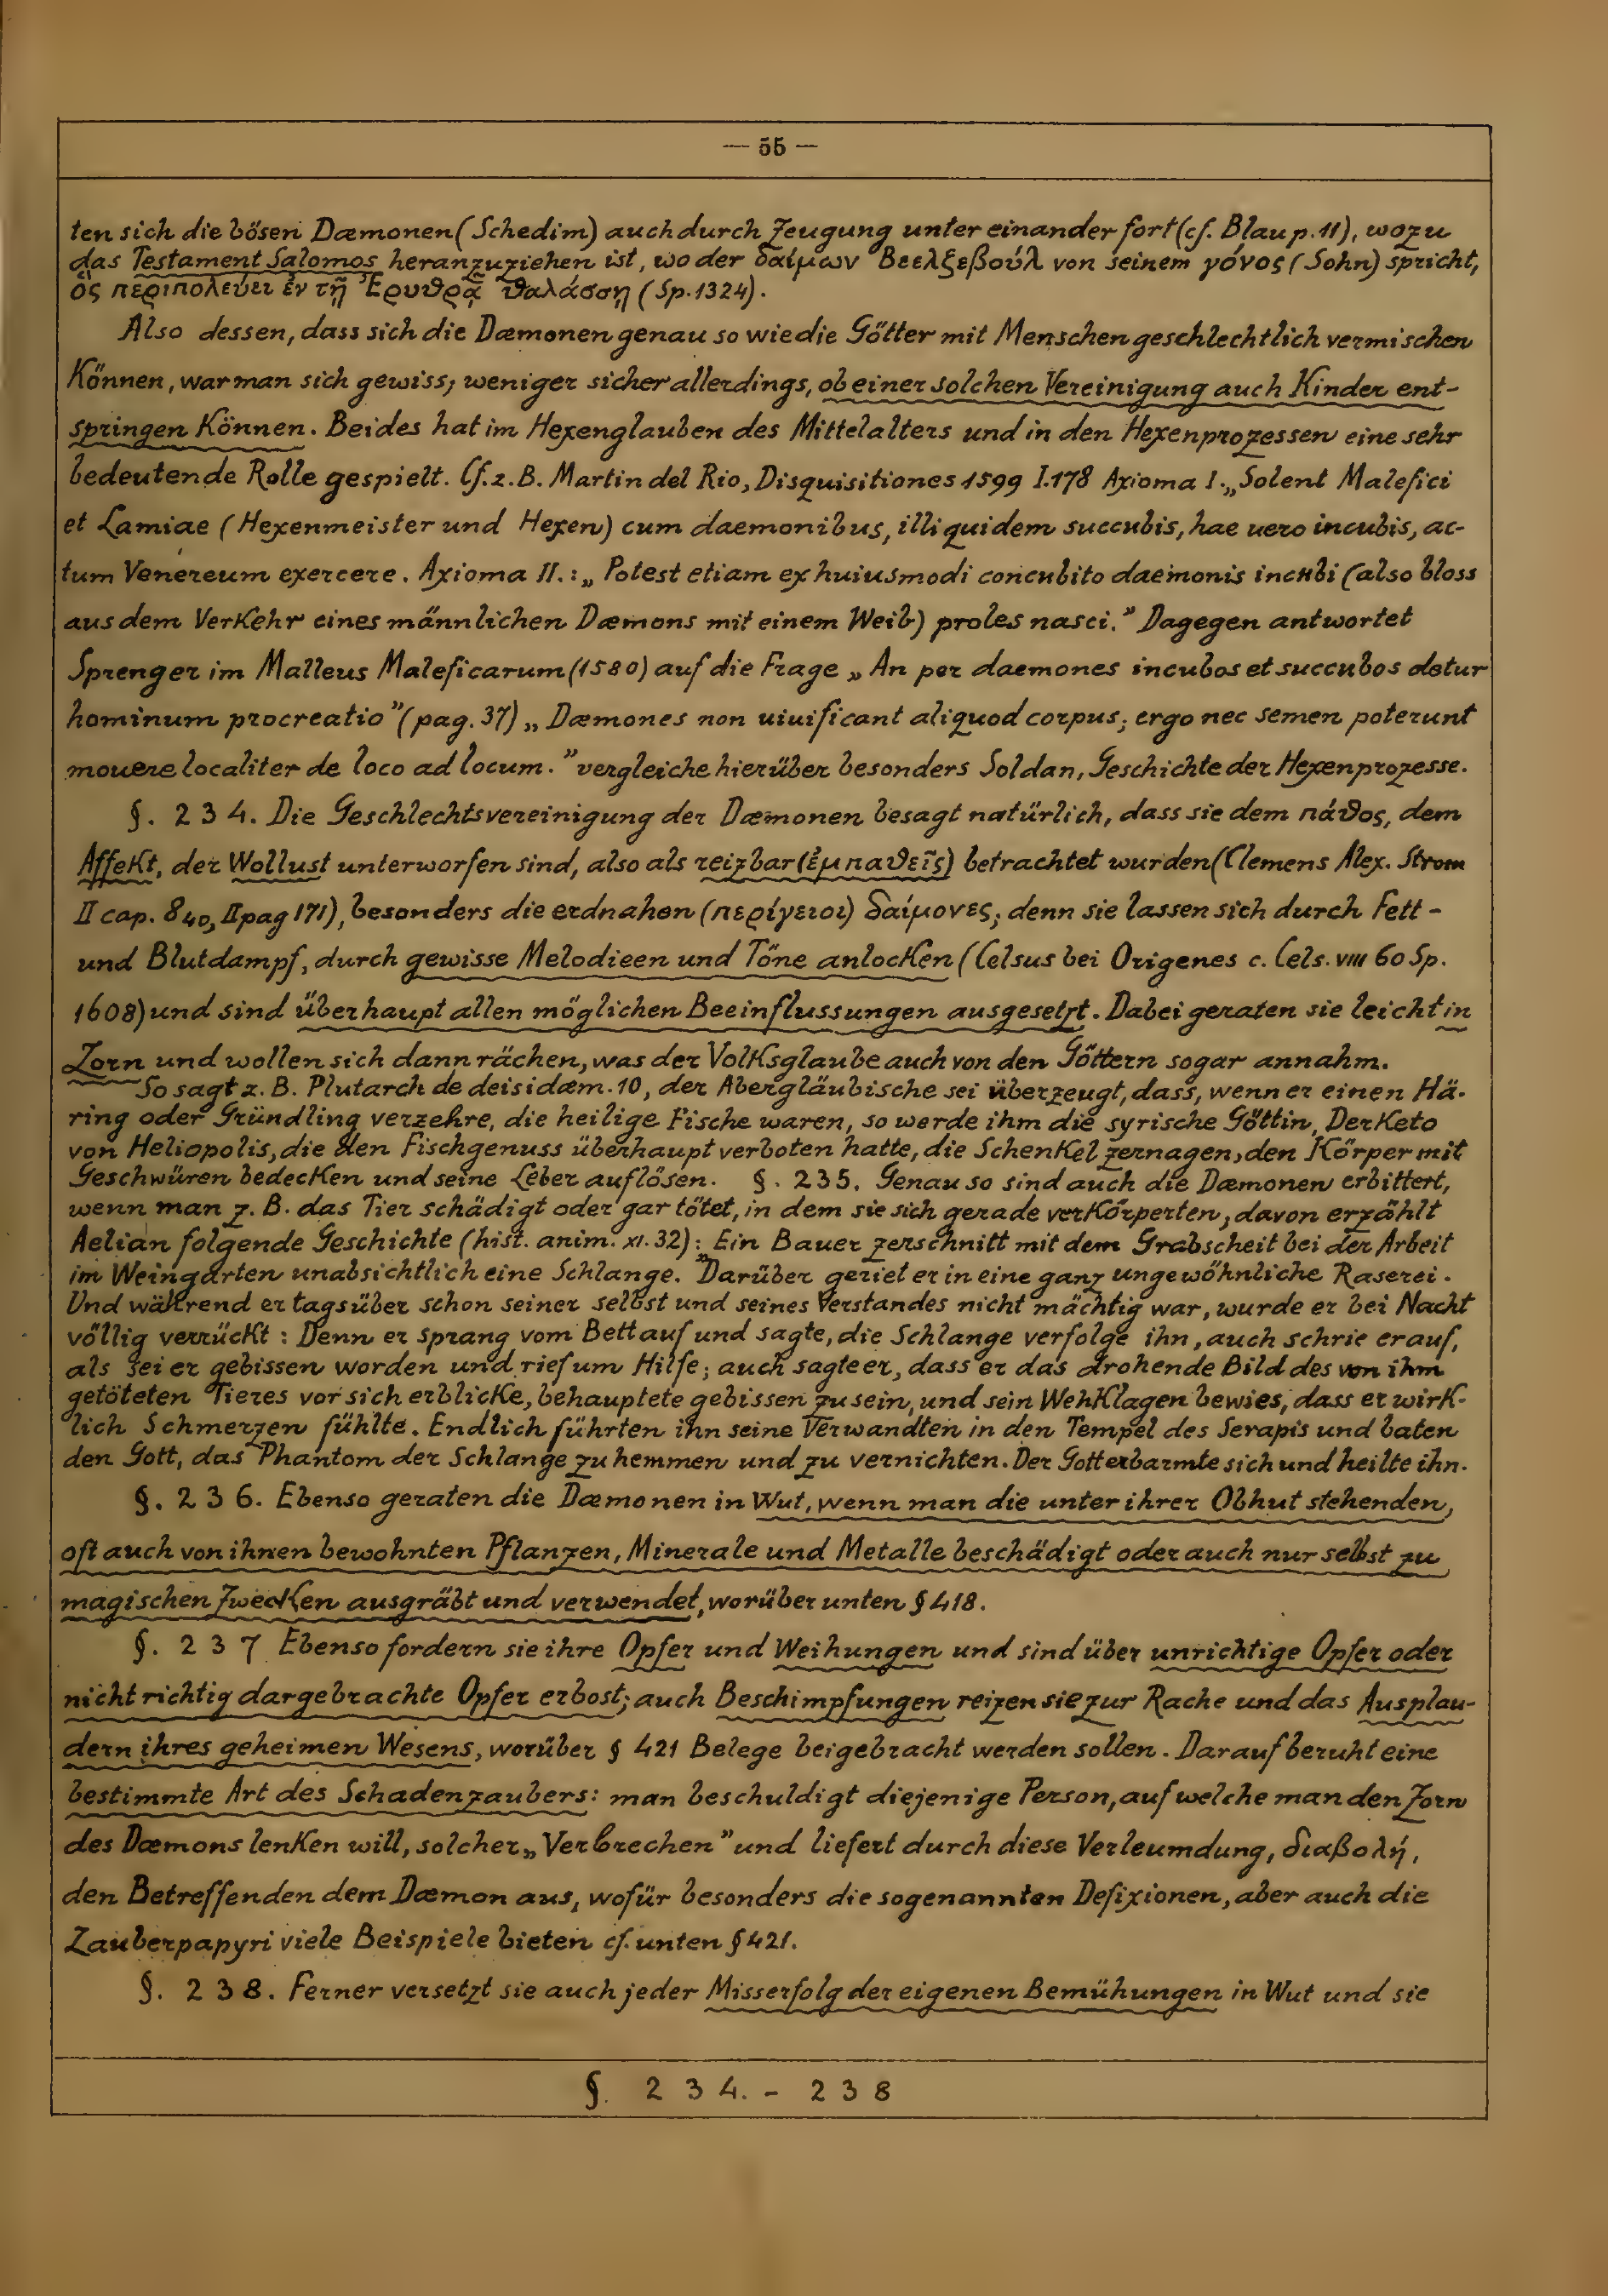 — 55 —
ten sich die bösen Dæmonen (Schedim) auch durch Zeugung unter einander fort (cf. Blau p. 11), wozu
das Testament Salomos heranzuziehen ist, wo der δαίμων Βεελξεβούλ von seinem γόνος (Sohn) spricht,
ὃς περιπολεύει ἐν τῇ Ἐρυθρᾷ θαλάσσῃ (Sp. 1324).
Also dessen, dass sich die Dæmonen genau so wie die Götter mit Menschen geschlechtlich vermischen
Können, war man sich gewiss; weniger sicher allerdings, ob einer solchen Vereinigung auch Kinder ent-
springen Können. Beides hat im Hexenglauben des Mittelalters und in den Hexenprozessen eine sehr
bedeutende Rolle gespielt. Cf. z. B. Martin del Rio, Disquisitiones 1599 I. 178 Axioma I. „Solent Malefici
et Lamiae (Hexenmeister und Hexen) cum daemonibus, illi quidem succubis, hae uero incubis, ac-
tum Venereum exercere. Axioma II. : „Potest etiam ex huiusmodi concubito daemonis incubi (also bloss
aus dem Verkehr eines männlichen Dæmons mit einem Weib) proles nasci.” Dagegen antwortet
Sprenger im Malleus Maleficarum (1580) auf die Frage „An per daemones incubos et succubos detur
hominum procreatio” (pag. 37) „Dæmones non uiuificant aliquod corpus; ergo nec semen poterunt
mouere localiter de loco ad locum.” vergleiche hierüber besonders Soldan, Geschichte der Hexenprozesse.
§. 234. Die Geschlechtsvereinigung der Dæmonen besagt natürlich, dass sie dem πάθος, dem
Affekt, der Wollust unterworfen sind, also als reizbar (ἐμπαθεῖς) betrachtet wurden (Clemens Alex. Strom
II cap. 8 40, II pag 171), besonders die erdnahen (περίγειοι) δαίμονες; denn sie lassen sich durch Fett-
und Blutdampf, durch gewisse Melodieen und Töne anlocken (Celsus bei Origenes c. Cels. VIII 60 Sp.
1608) und sind überhaupt allen möglichen Beeinflussungen ausgesetzt. Dabei geraten sie leicht in
Zorn und wollen sich dann rächen, was der Volksglaube auch von den Göttern sogar annahm.
So sagt z. B. Plutarch de deisidæm. 10, der Abergläubische sei überzeugt, dass, wenn er einen Hä-
ring oder Gründling verzehre, die heilige Fische waren, so werde ihm die syrische Göttin, Derketo
von Heliopolis, die den Fischgenuss überhaupt verboten hatte, die Schenkel zernagen, den Körper mit
Geschwüren bedecken und seine Leber auflösen. §. 235. Genau so sind auch die Dæmonen erbittert,
wenn man z. B. das Tier schädigt oder gar tötet, in dem sie sich gerade verkörperten; davon erzählt
Aelian folgende Geschichte (hist. anim. XI. 32): „Ein Bauer zerschnitt mit dem Grabscheit bei der Arbeit
im Weingarten unabsichtlich eine Schlange. Darüber geriet er in eine ganz ungewöhnliche Raserei.
Und während er tagsüber schon seiner selbst und seines Verstandes nicht mächtig war, wurde er bei Nacht
völlig verrückt : Denn er sprang vom Bett auf und sagte, die Schlange verfolge ihn, auch schrie er auf,
als sei er gebissen worden und rief um Hilfe; auch sagte er, dass er das drohende Bild des von ihm
getöteten Tieres vor sich erblicke, behauptete gebissen zu sein, und sein Wehklagen bewies, dass er wirk-
lich Schmerzen fühlte. Endlich führten ihn seine Verwandten in den Tempel des Serapis und baten
den Gott, das Phantom der Schlange zu hemmen und zu vernichten. Der Gott erbarmte sich und heilte ihn.
§. 236. Ebenso geraten die Dæmonen in Wut, wenn man die unter ihrer Obhut stehenden,
oft auch von ihnen bewohnten Pflanzen, Minerale und Metalle beschädigt oder auch nur selbst zu
magischen Zwecken ausgräbt und verwendet, worüber unten § 418.
§. 237 Ebenso fordern sie ihre Opfer und Weihungen und sind über unrichtige Opfer oder
nicht richtig dargebrachte Opfer erbost; auch Beschimpfungen reizen sie zur Rache und das Ausplau-
dern ihres geheimen Wesens, worüber § 421 Belege beigebracht werden sollen. Darauf beruht eine
bestimmte Art des Schadenzaubers: man beschuldigt diejenige Person, auf welche man den Zorn
des Dæmons lenken will, solcher „Verbrechen” und liefert durch diese Verleumdung, διαβολή,
den Betreffenden dem Dæmon aus, wofür besonders die sogenannten Defixionen, aber auch die
Zauberpapyri viele Beispiele bieten cf. unten § 421.
§. 238. Ferner versetzt sie auch jeder Misserfolg der eigenen Bemühungen in Wut und sie
§. 234. - 238